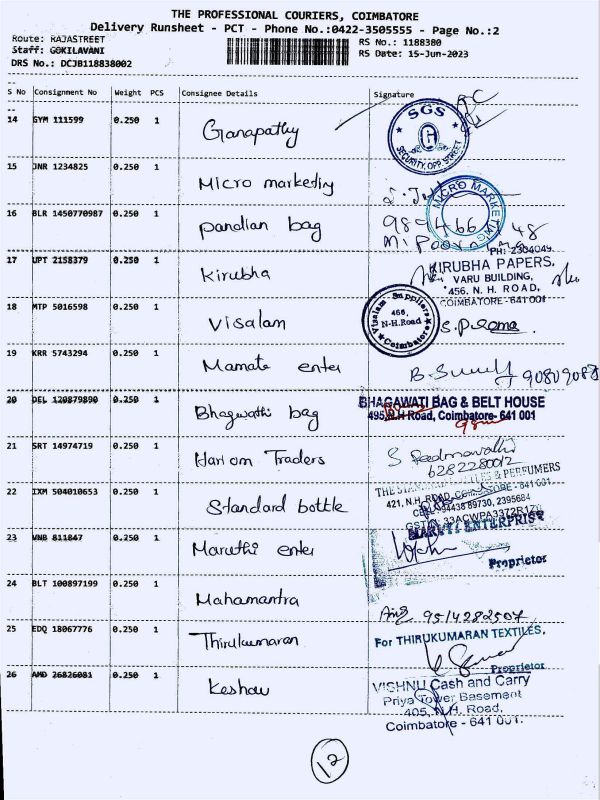 THE PROFESSIONAL COURIERS, COIMBATORE
Delivery Runsheet - PCT - Phone No.:0422-3505555 - Page No.:2
Route: RAJASTREET
RS No.: 1188380
Staff: GOKILAVANI
RS Date: 15-Jun-2023
DRS No.: DCJB118838002
S No Consignment No Weight PCS Consignee Details Signature
14 GYM 111599 0.250 1 Ganapathy
SGS
SECURITY, OPP. STREET
15 JNR 1234825 0.250 1 Micro marketing
MICRO MARKETING
16 BLR 1450770987 0.250 1 pandian bag
989466 48
PH: 2304049
17 UPT 2158379 0.250 1 Kirubha
KIRUBHA PAPERS,
VARU BUILDING,
456, N. H. ROAD,
COIMBATORE - 641 001
18 MTP 5016598 0.250 1 Visalam
Visalam Suppliers
466,
N-H.Road
Coimbatore
S.Prema
19 KRR 5743294 0.250 1 Mamata enter
20 DEL 120879890 0.250 1 Bhagwathi bag
BHAGAWATI BAG & BELT HOUSE
495, N.H Road, Coimbatore- 641 001
21 SRT 14974719 0.250 1 Hari om Traders
S Padmavathi
6282280012
22 IXM 504010653 0.250 1 Standard bottle
& PERFUMERS
421, N.H. ROAD, COIMBATORE - 641 001.
CELL: 94438 89730, 2395684
23 VNB 811847 0.250 1 Maruthi enter
MARUTI ENTERPRISE
Proprietor
24 BLT 100897199 0.250 1 Mahamantra
9514282507
25 EDQ 18067776 0.250 1 Thirukumaran
For THIRUKUMARAN TEXTILES,
Proprietor
26 AMD 26826081 0.250 1 Keshav
VISHNU Cash and Carry
Priya Tower Basement
405, N.H. Road,
Coimbatore - 641 001.
12